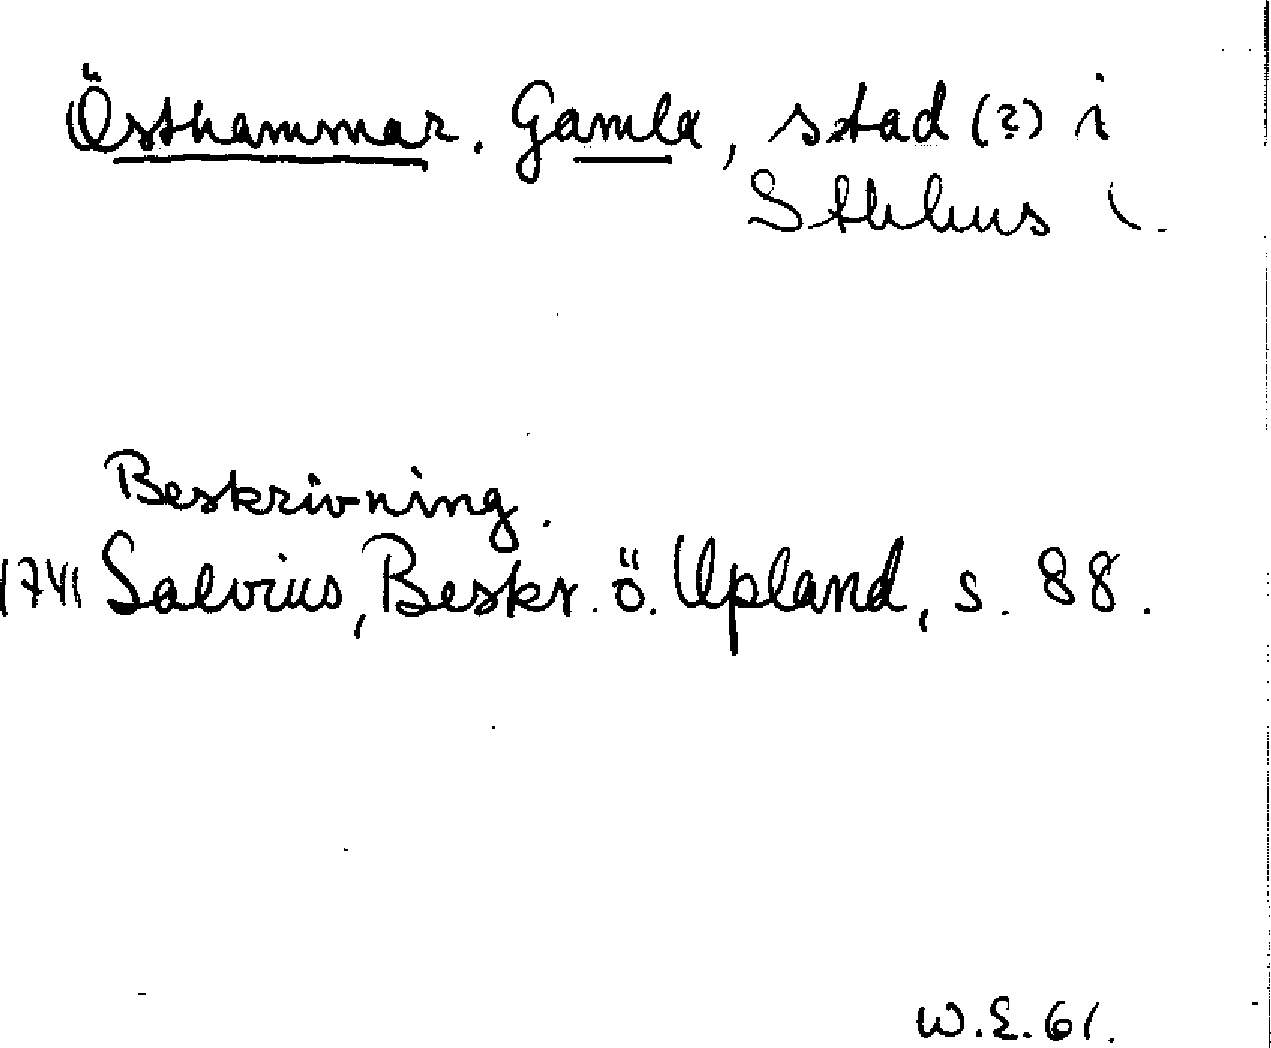 Östhammar. Gamla, stad (?) i
Sthlms l.
Beskrivning.
1741 Salvius, Beskr. ö. Upland, s. 88.
W.E. 61.